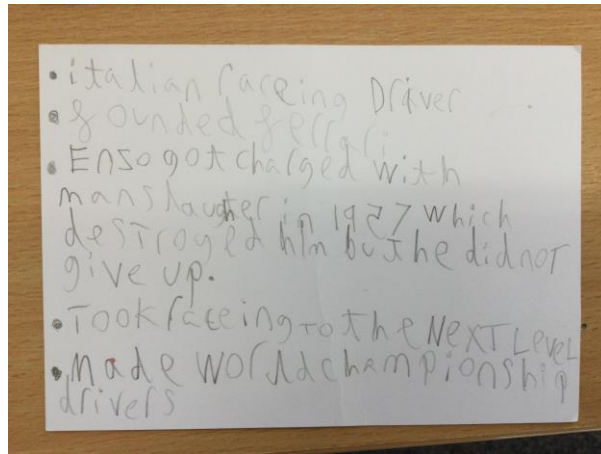 • italian raceing Driver
• founded ferrari
• Enso got charged with
manslaughter in 1957 which
destroyed him but he did not
give up.
• Took raceing to the NexT Level
• Made world championship
drivers